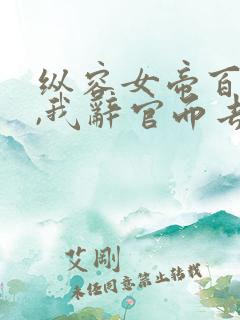 纵容女帝百
,我辞官而去
艾刚
未经同意禁止转载